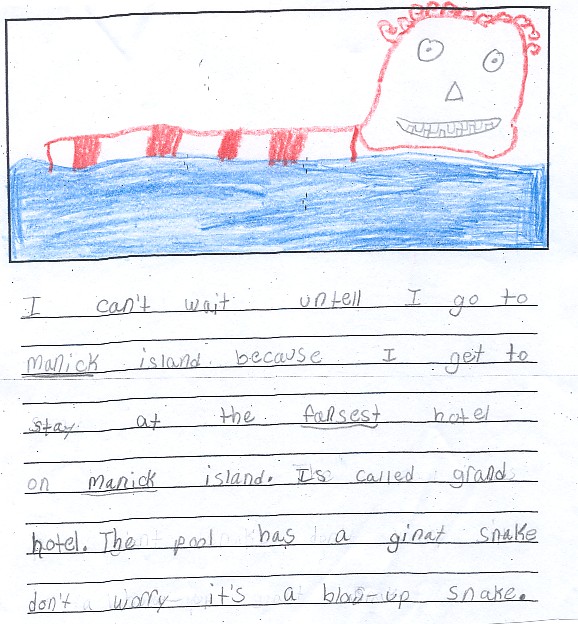 I can't wait untell I go to
manick island. because I get to
stay at the fansest hotel
on manick island. Is called grand
hotel. The pool has a ginat snake
don't worry it's a blow-up snake.